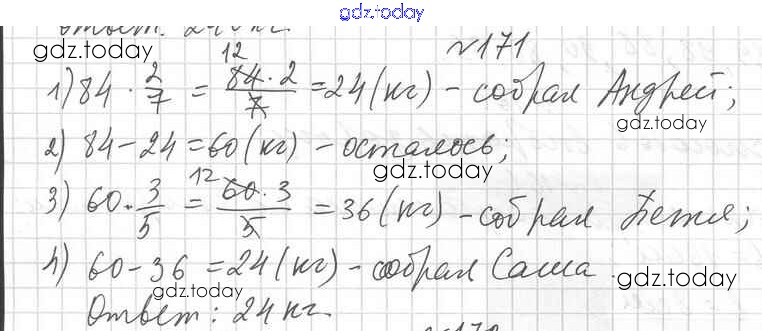 gdz.today
Ответ: 24 кг.
gdz.today
№171
1) 84 · 2/7 = 84 · 2/7 = 24 (кг) – собрал Андрей;
12
gdz.today
2) 84 – 24 = 60 (кг) – осталось;
gdz.today
3) 60 · 3/5 = 60 · 3/5 = 36 (кг) – собрал Петя;
12
4) 60 – 36 = 24 (кг) – собрал Саша
gdz.today
gdz.today
Ответ: 24 кг.
gdz.today